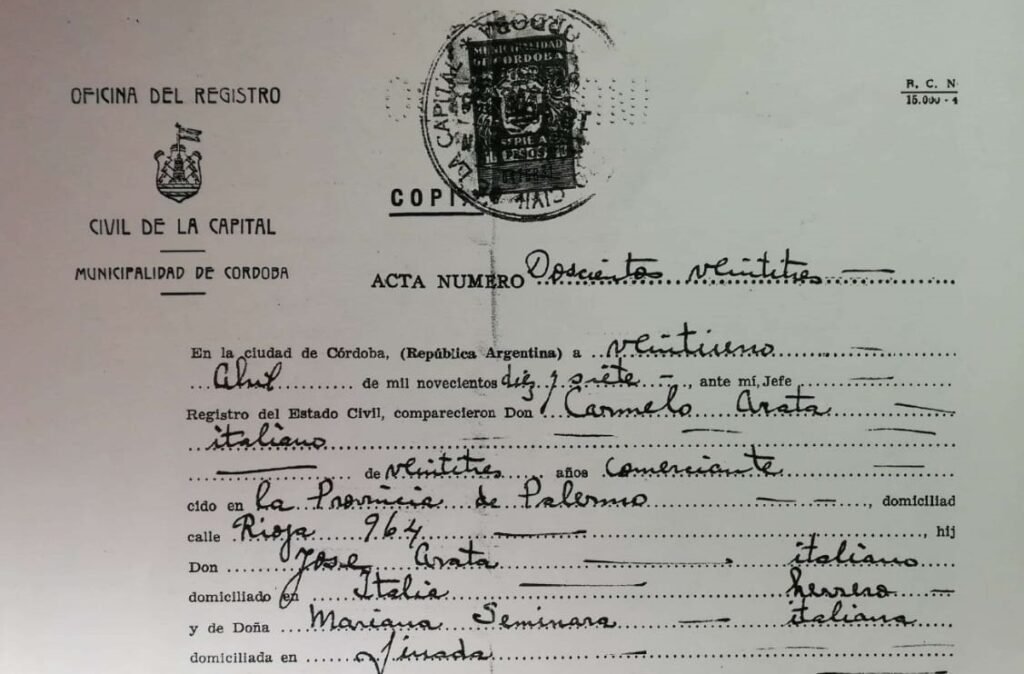 OFICINA DEL REGISTRO
CIVIL DE LA CAPITAL
MUNICIPALIDAD DE CORDOBA
LA CAPITAL * CORDOBA
CIVIL
MUNICIPALIDAD
DE CORDOBA
SERIE A
PESOS
R. C. N
15.000 - 4
COPIA
ACTA NUMERO Doscientos veintitres
En la ciudad de Córdoba, (República Argentina) a veintiuno
Abril de mil novecientos diez y siete, ante mí, Jefe
Registro del Estado Civil, comparecieron Don Carmelo Arata
italiano
de veintitres años comerciante
cido en la Provincia de Palermo, domiciliad
calle Rioja 964, hij
Don Jose Arata italiano
domiciliado en Italia herrero
y de Doña Mariana Seminara italiana
domiciliada en finada